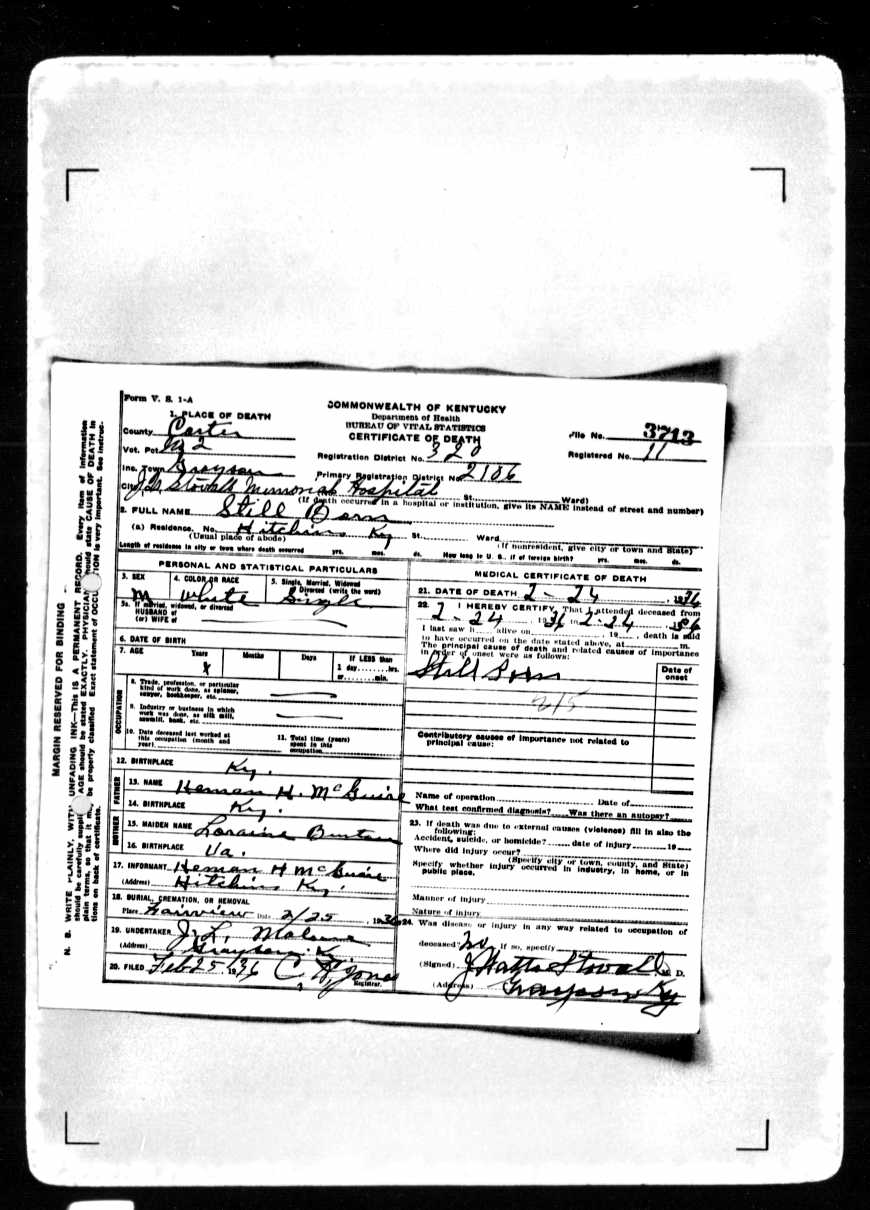 Form V. S. 1-A
COMMONWEALTH OF KENTUCKY
Department of Health
BUREAU OF VITAL STATISTICS
CERTIFICATE OF DEATH
1. PLACE OF DEATH
County Carter
Vot. Pct. No 2
Inc. Town Grayson
City J.Q. Stovall Memorial Hospital St. Ward)
(If death occurred in a hospital or institution, give its NAME instead of street and number)
File No. 3713
Registered No. 11
Registration District No. 320
Primary Registration District No. 2106
2. FULL NAME Still Born
(a) Residence. No. Hitchins Ky St. Ward
(Usual place of abode) (If nonresident, give city or town and State)
Length of residence in city or town where death occurred yrs. mos. ds. How long in U. S., if of foreign birth? yrs. mos. ds.
PERSONAL AND STATISTICAL PARTICULARS
3. SEX 4. COLOR OR RACE 5. Single, Married, Widowed
Divorced (write the word)
M White Single
5a. If married, widowed, or divorced
HUSBAND of
(or) WIFE of
6. DATE OF BIRTH
7. AGE Years Months Days If LESS than
1 day........hrs.
or........min.
OCCUPATION
8. Trade, profession, or particular
kind of work done, as spinner,
sawyer, bookkeeper, etc.
9. Industry or business in which
work was done, as silk mill,
sawmill, bank, etc.
10. Date deceased last worked at
this occupation (month and
year)
11. Total time (years)
spent in this
occupation
12. BIRTHPLACE Ky.
FATHER
13. NAME Heman H. McGuire
14. BIRTHPLACE Ky.
MOTHER
15. MAIDEN NAME Loraine
16. BIRTHPLACE Va.
17. INFORMANT Heman H McGuire
(Address) Hitchins Ky.
18. BURIAL, CREMATION, OR REMOVAL
Place Fairview Date 2/25, 1936
19. UNDERTAKER J. L. Malone
(Address) Grayson, Ky.
20. FILED Feb 25 1936 C. H. Jones
Registrar.
MEDICAL CERTIFICATE OF DEATH
21. DATE OF DEATH 2-24, 1936
22. I HEREBY CERTIFY, That I attended deceased from
2-24, 1936 to 2-24, 1936
I last saw h alive on , 19 , death is said
to have occurred on the date stated above, at m.
The principal cause of death and related causes of importance
in order of onset were as follows:
Date of
onset
Still Born
215
Contributory causes of importance not related to
principal cause:
Name of operation Date of
What test confirmed diagnosis? Was there an autopsy?
23. If death was due to external causes (violence) fill in also the
following:
Accident, suicide, or homicide? date of injury 19
Where did injury occur?
(Specify city or town, county, and State)
Specify whether injury occurred in industry, in home, or in
public place.
Manner of injury
Nature of injury
24. Was disease or injury in any way related to occupation of
deceased? No If so, specify
(Signed) J Watts Stovall M. D.
(Address) Grayson Ky
MARGIN RESERVED FOR BINDING
N. B. WRITE PLAINLY, WITH UNFADING INK—This is A PERMANENT RECORD. Every item of information
should be carefully supplied. AGE should be stated EXACTLY. PHYSICIAN should state CAUSE OF DEATH in
plain terms, so that it may be properly classified. Exact statement of OCCUPATION is very important. See instruc-
tions on back of certificate.